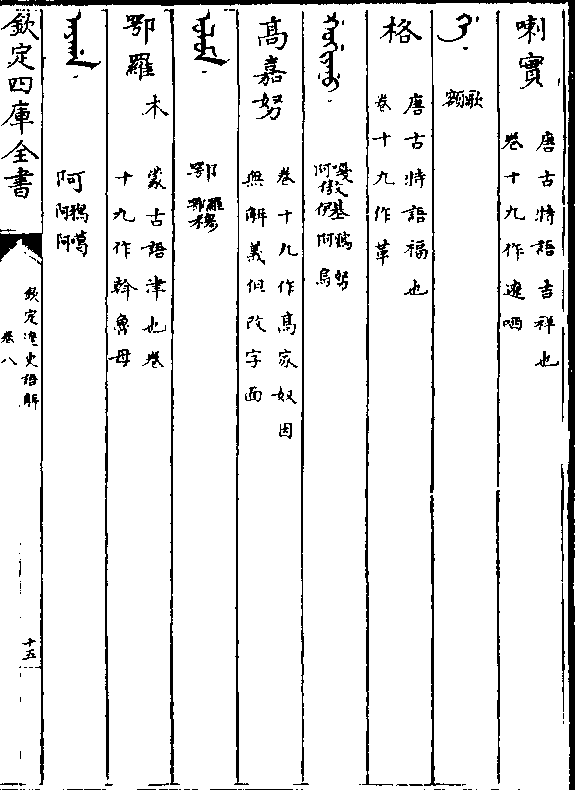 喇實
唐古特語吉祥也
卷十九作遼哂
歌額
格
唐古特語福也
卷十九作革
高嘉努
卷十九作高家奴因
無解義但改字面
鄂
鄂羅木
蒙古語津也卷
十九作斡魯母
阿
鴉噶
阿阿
欽定四庫全書
欽定遼史語解
卷八
十五